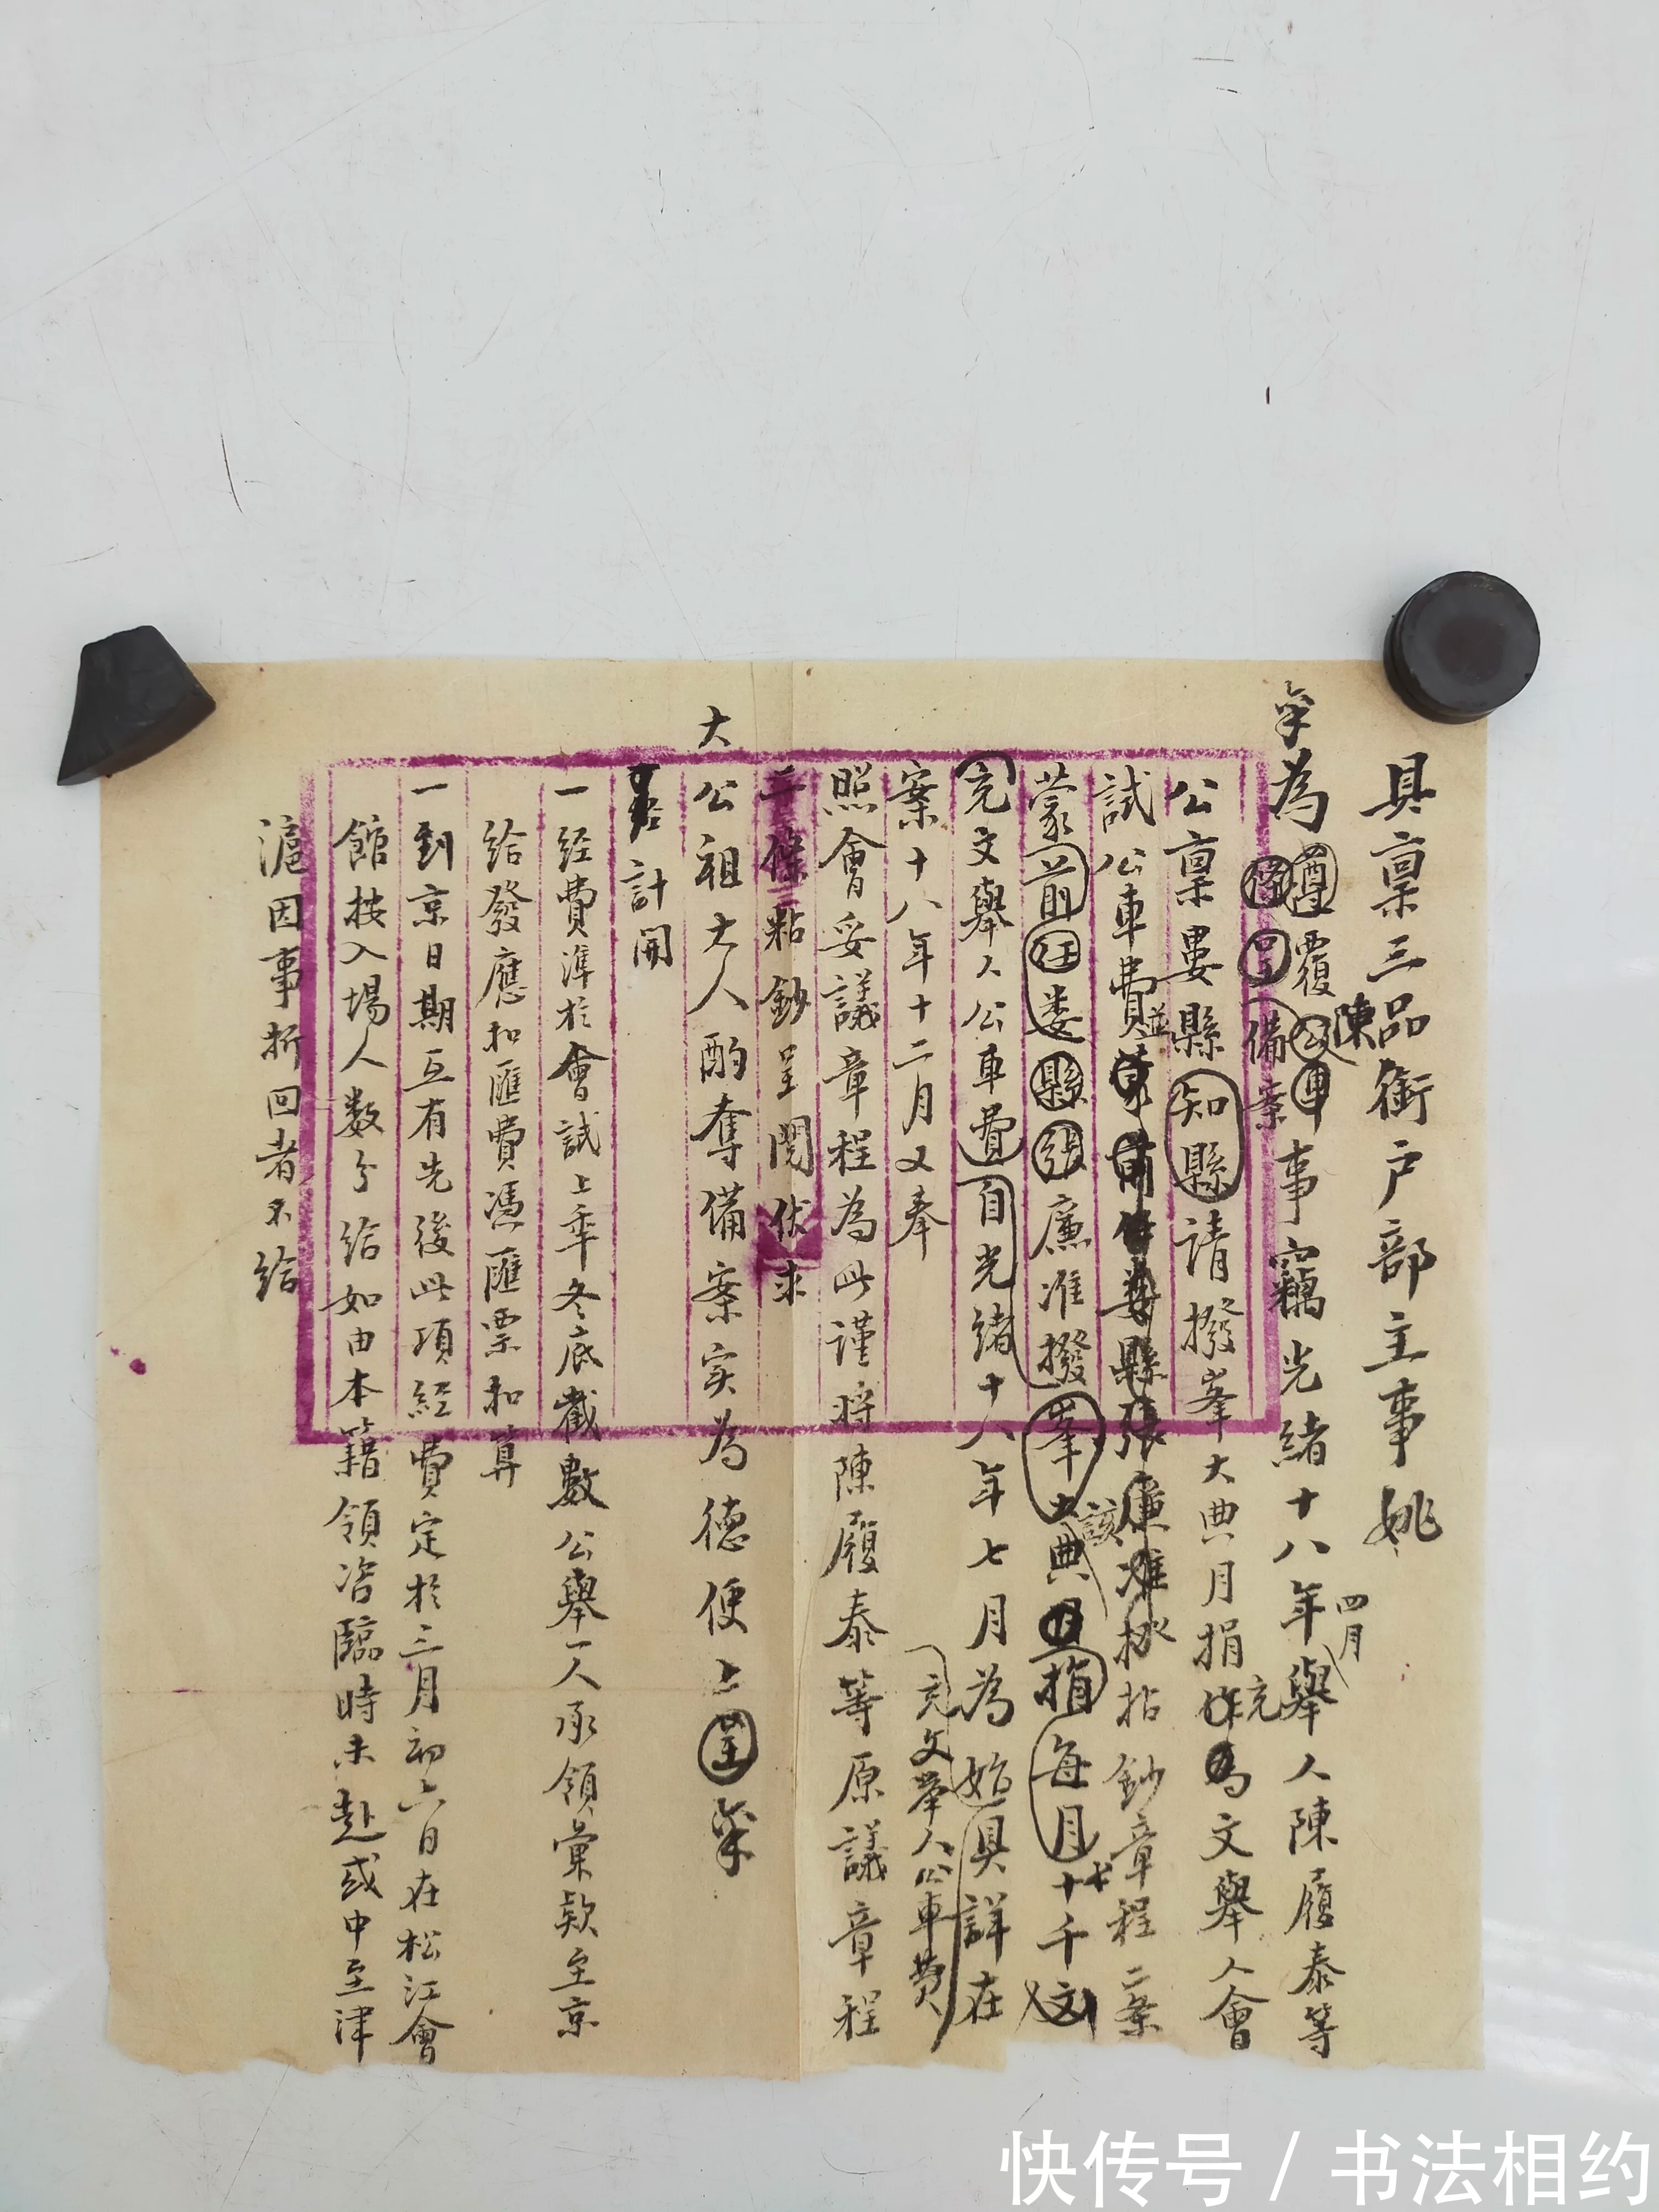 具稟三品銜户部主事姚
稟為遵覆陳公車事竊光緒十八年四月舉人陳履泰等
備案
公稟婁縣知縣請撥峯大典月捐充為文舉人會
試公車費並蒙前婁縣張廉准撥抄章程二案
蒙前任婁縣張廉准撥峯大典捐每月十千文
充文舉人公車費自光緒十八年七月為始具詳在
案十八年十二月又奉
充文举人公車費
照會妥議章程為此謹將陳履泰等原議章程
二條粘鈔呈閱伏求
大公祖大人酌奪備案实為德便上呈稟
計開
一经費準於會試上年冬底截數公舉一人承領彙款至京
給發應扣匯費憑匯票扣算
一到京日期互有先後此項經費定於三月初六日在松江會
館按入場人数分給如由本籍領咨臨時未赴或中至津
滬因事折回者不給
快传号/书法相约